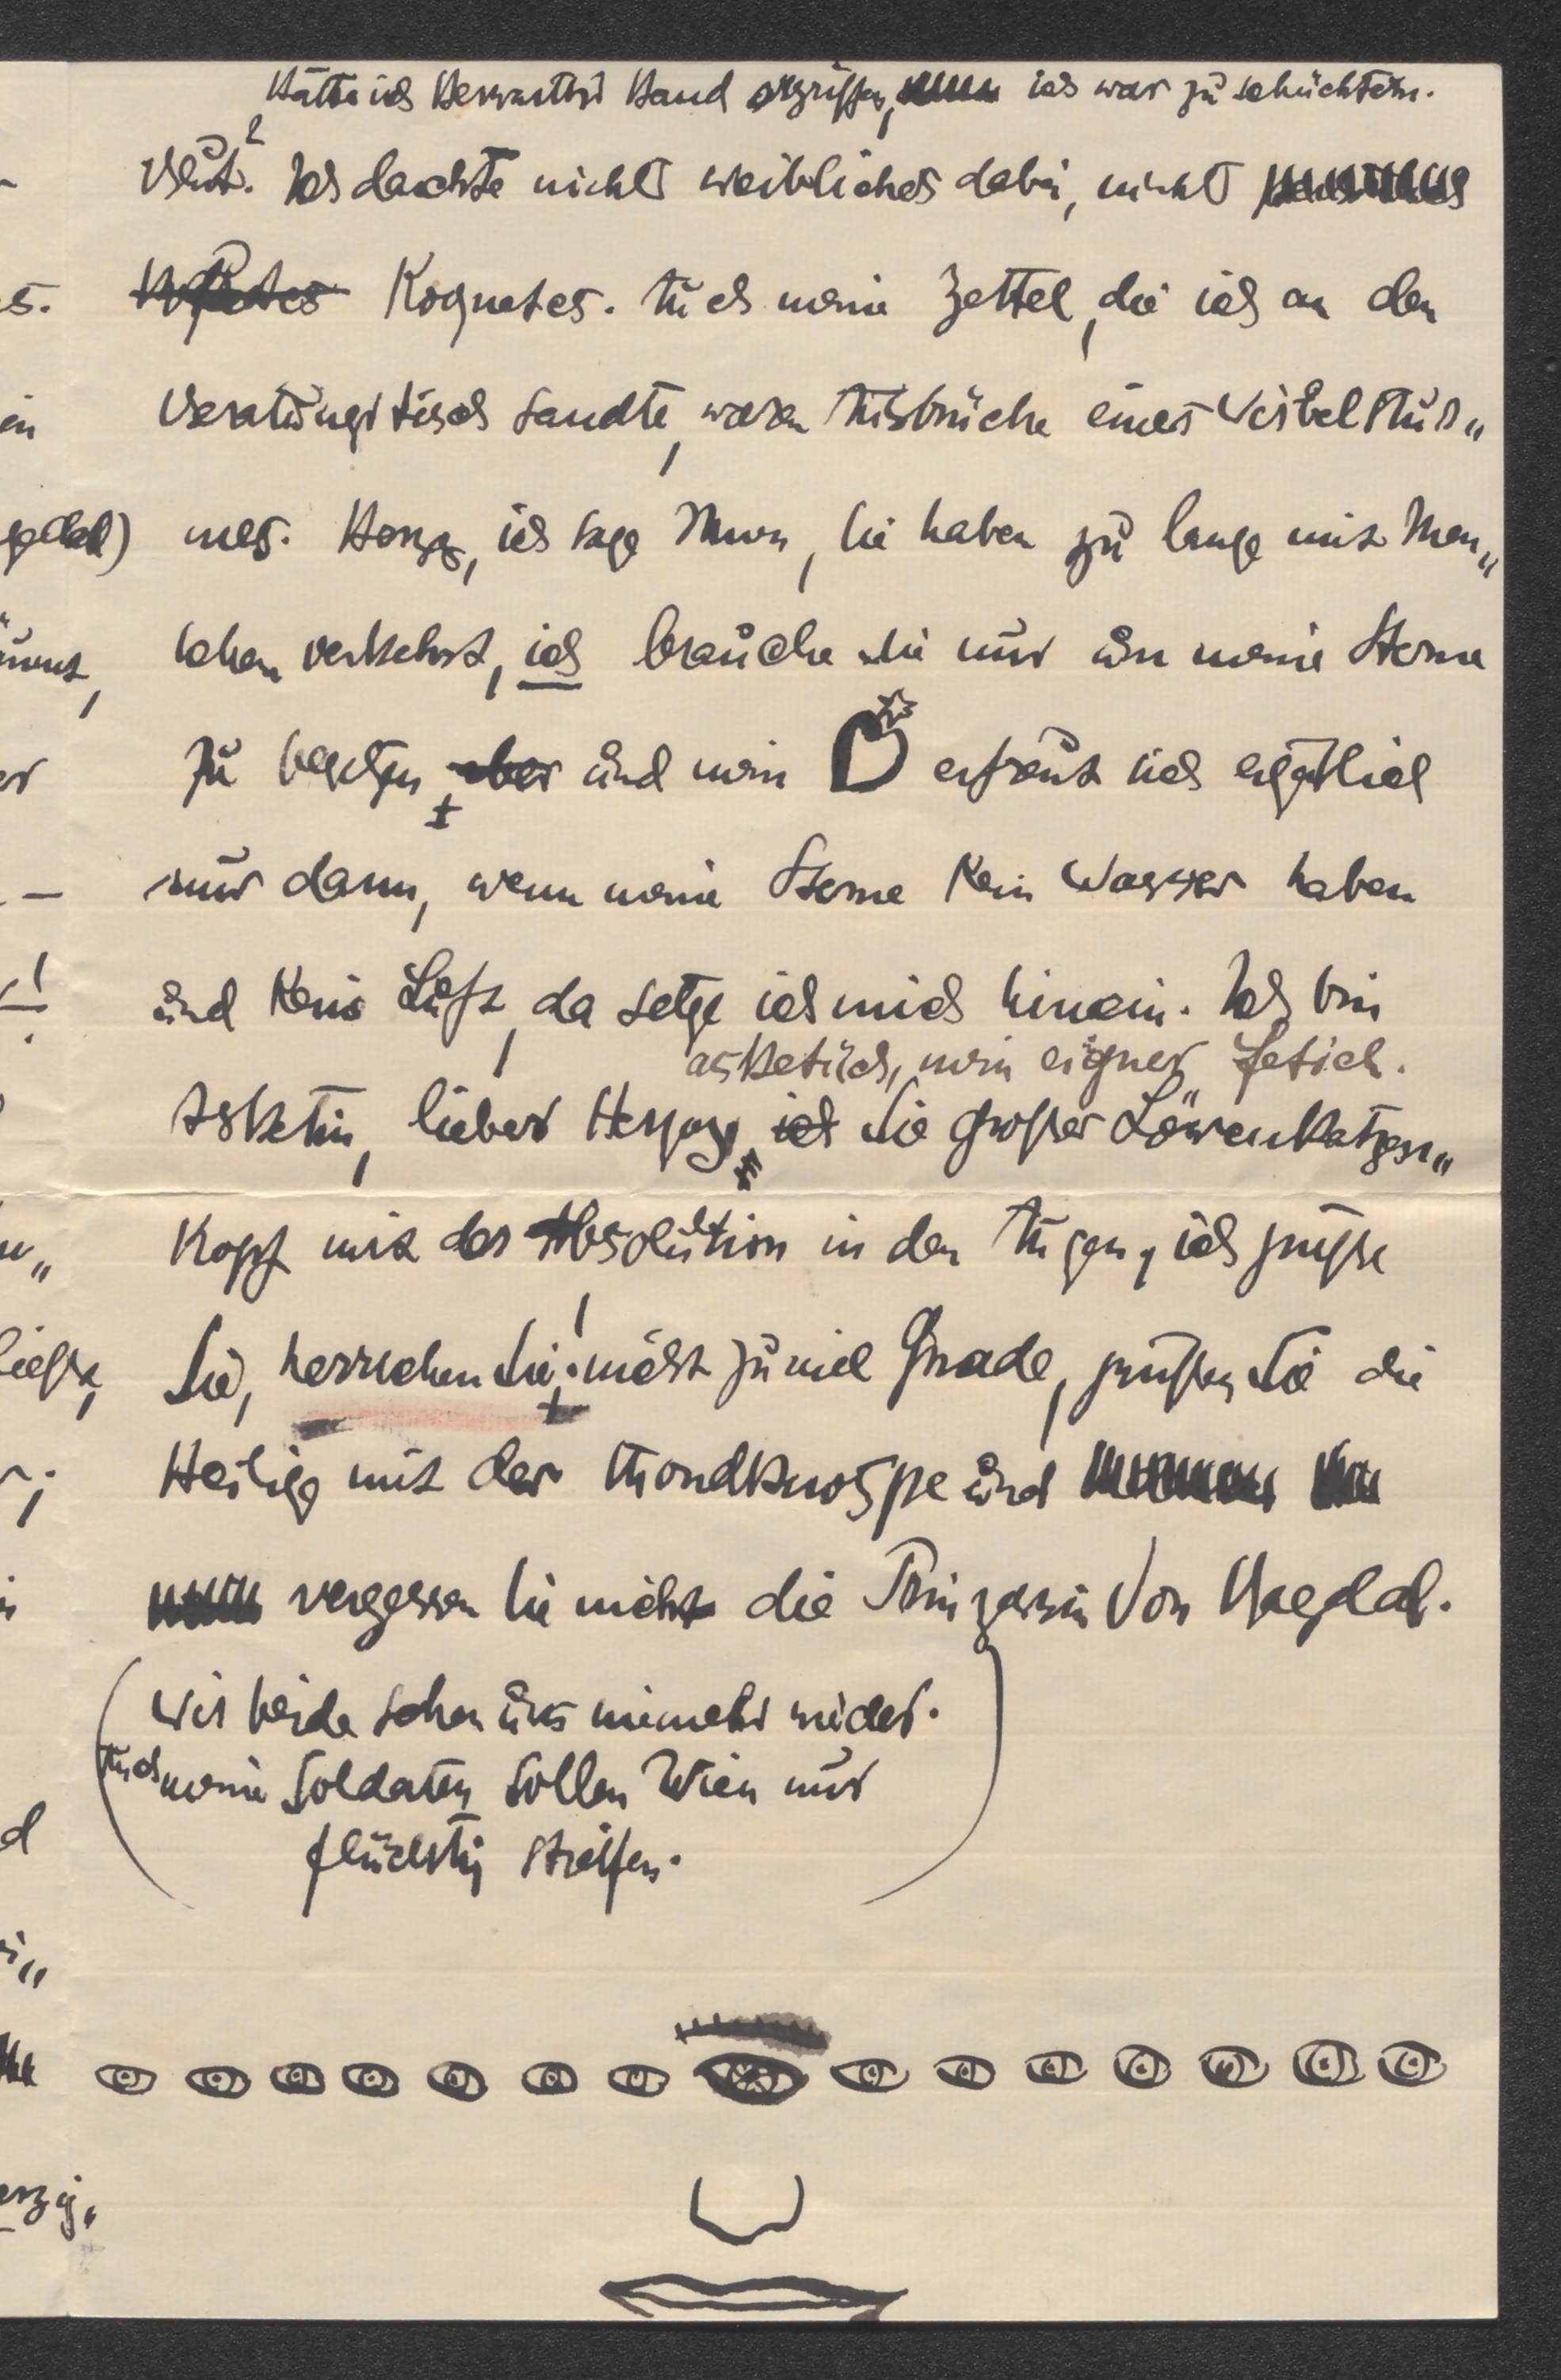 Hätte ich Herwarths Hand ergriffen, ich war zu schüchtern.
Blut. Ich dachte nichts weibliches dabei, nichts
Kognetes. Auch meine Zettel, die ich an den
Beratungstisch sandte, waren Ausbrüche eines Wirbelstur„
mes. Herzog, ich sage Ihnen, Sie haben zu lange mit Men„
schen verkehrt, ich brauche Sie nur um meine Sterne
zu besetzen und mein erfreut sich ergötzlich
nur dann, wenn meine Sterne kein Wasser haben
und keine Luft, da setze ich mich hinein. Ich bin
asketisch, mein eigner Fetisch.
Asketin, lieber Herzog, Sie großer Löwenkatzen„
kopf mit der Absolution in den Augen, ich grüße
Sie, herrschen Sie! nicht zu viel Gnade, grüßen Sie die
Heilige mit der Mondknospe und
vergessen Sie nicht die Prinzessin von Bagdad.
(Wir beide sehen uns nimmehr wieder.
Auch meine Soldaten sollen Wien nur
flüchtig streifen.)